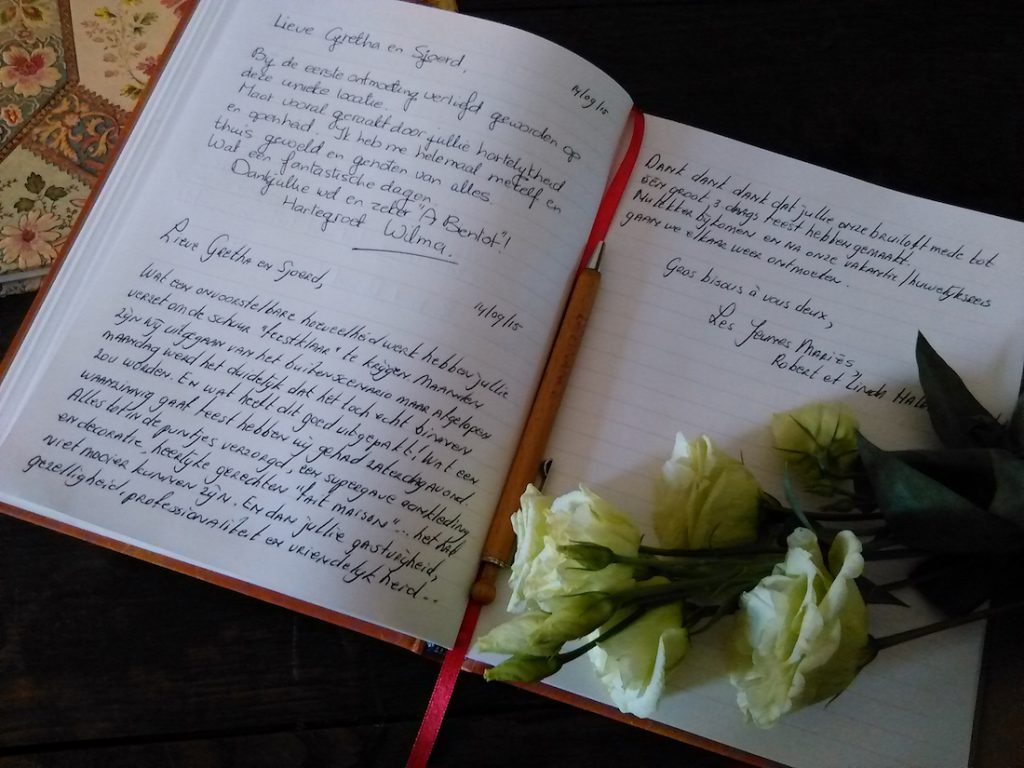 Lieve Gretha en Sjoerd,
14/09/15
By de eerste ontmoeting verliefd geworden op
deze unieke locatie.
Maar vooral geraakt door jullie hartelykheid
en openheid. Ik heb me helemaal mezelf en
thuis gevoeld en genoten van alles.
Wat een fantastische dagen.
Dank jullie wel en zeker "A Bentot"!
Hartegroet Wilma.
Lieve Gretha en Sjoerd,
14/09/15
Wat een onvoorstelbare hoeveelheid werk hebben jullie
verzet om de schuur "feestklaar" te krijgen. Maanden
zijn wij uitgegaan van het buitenscenario maar afgelopen
maandag werd het duidelijk dat het toch echt binnen
zou worden. En wat heeft dit goed uitgepakt! Wat een
waanzinnig gaaf feest hebben wij gehad zaterdagavond.
Alles tot in de puntjes verzorgd, een supergave aankleding
en decoratie, heerlijke gerechten "fait maison"... het had
niet mooier kunnen zijn. En dan jullie gastvrijheid,
gezelligheid, professionaliteit en vriendelijkheid...
Dank dank dank dat jullie onze bruiloft mede tot
één groot 3 daags feest hebben gemaakt.
Nu lekker bijkomen en na onze vakantie/huwelijksreis
gaan we elkaar weer ontmoeten.
Gros bisous à vous deux,
Les Jeunes Mariés,
Robert et Linda